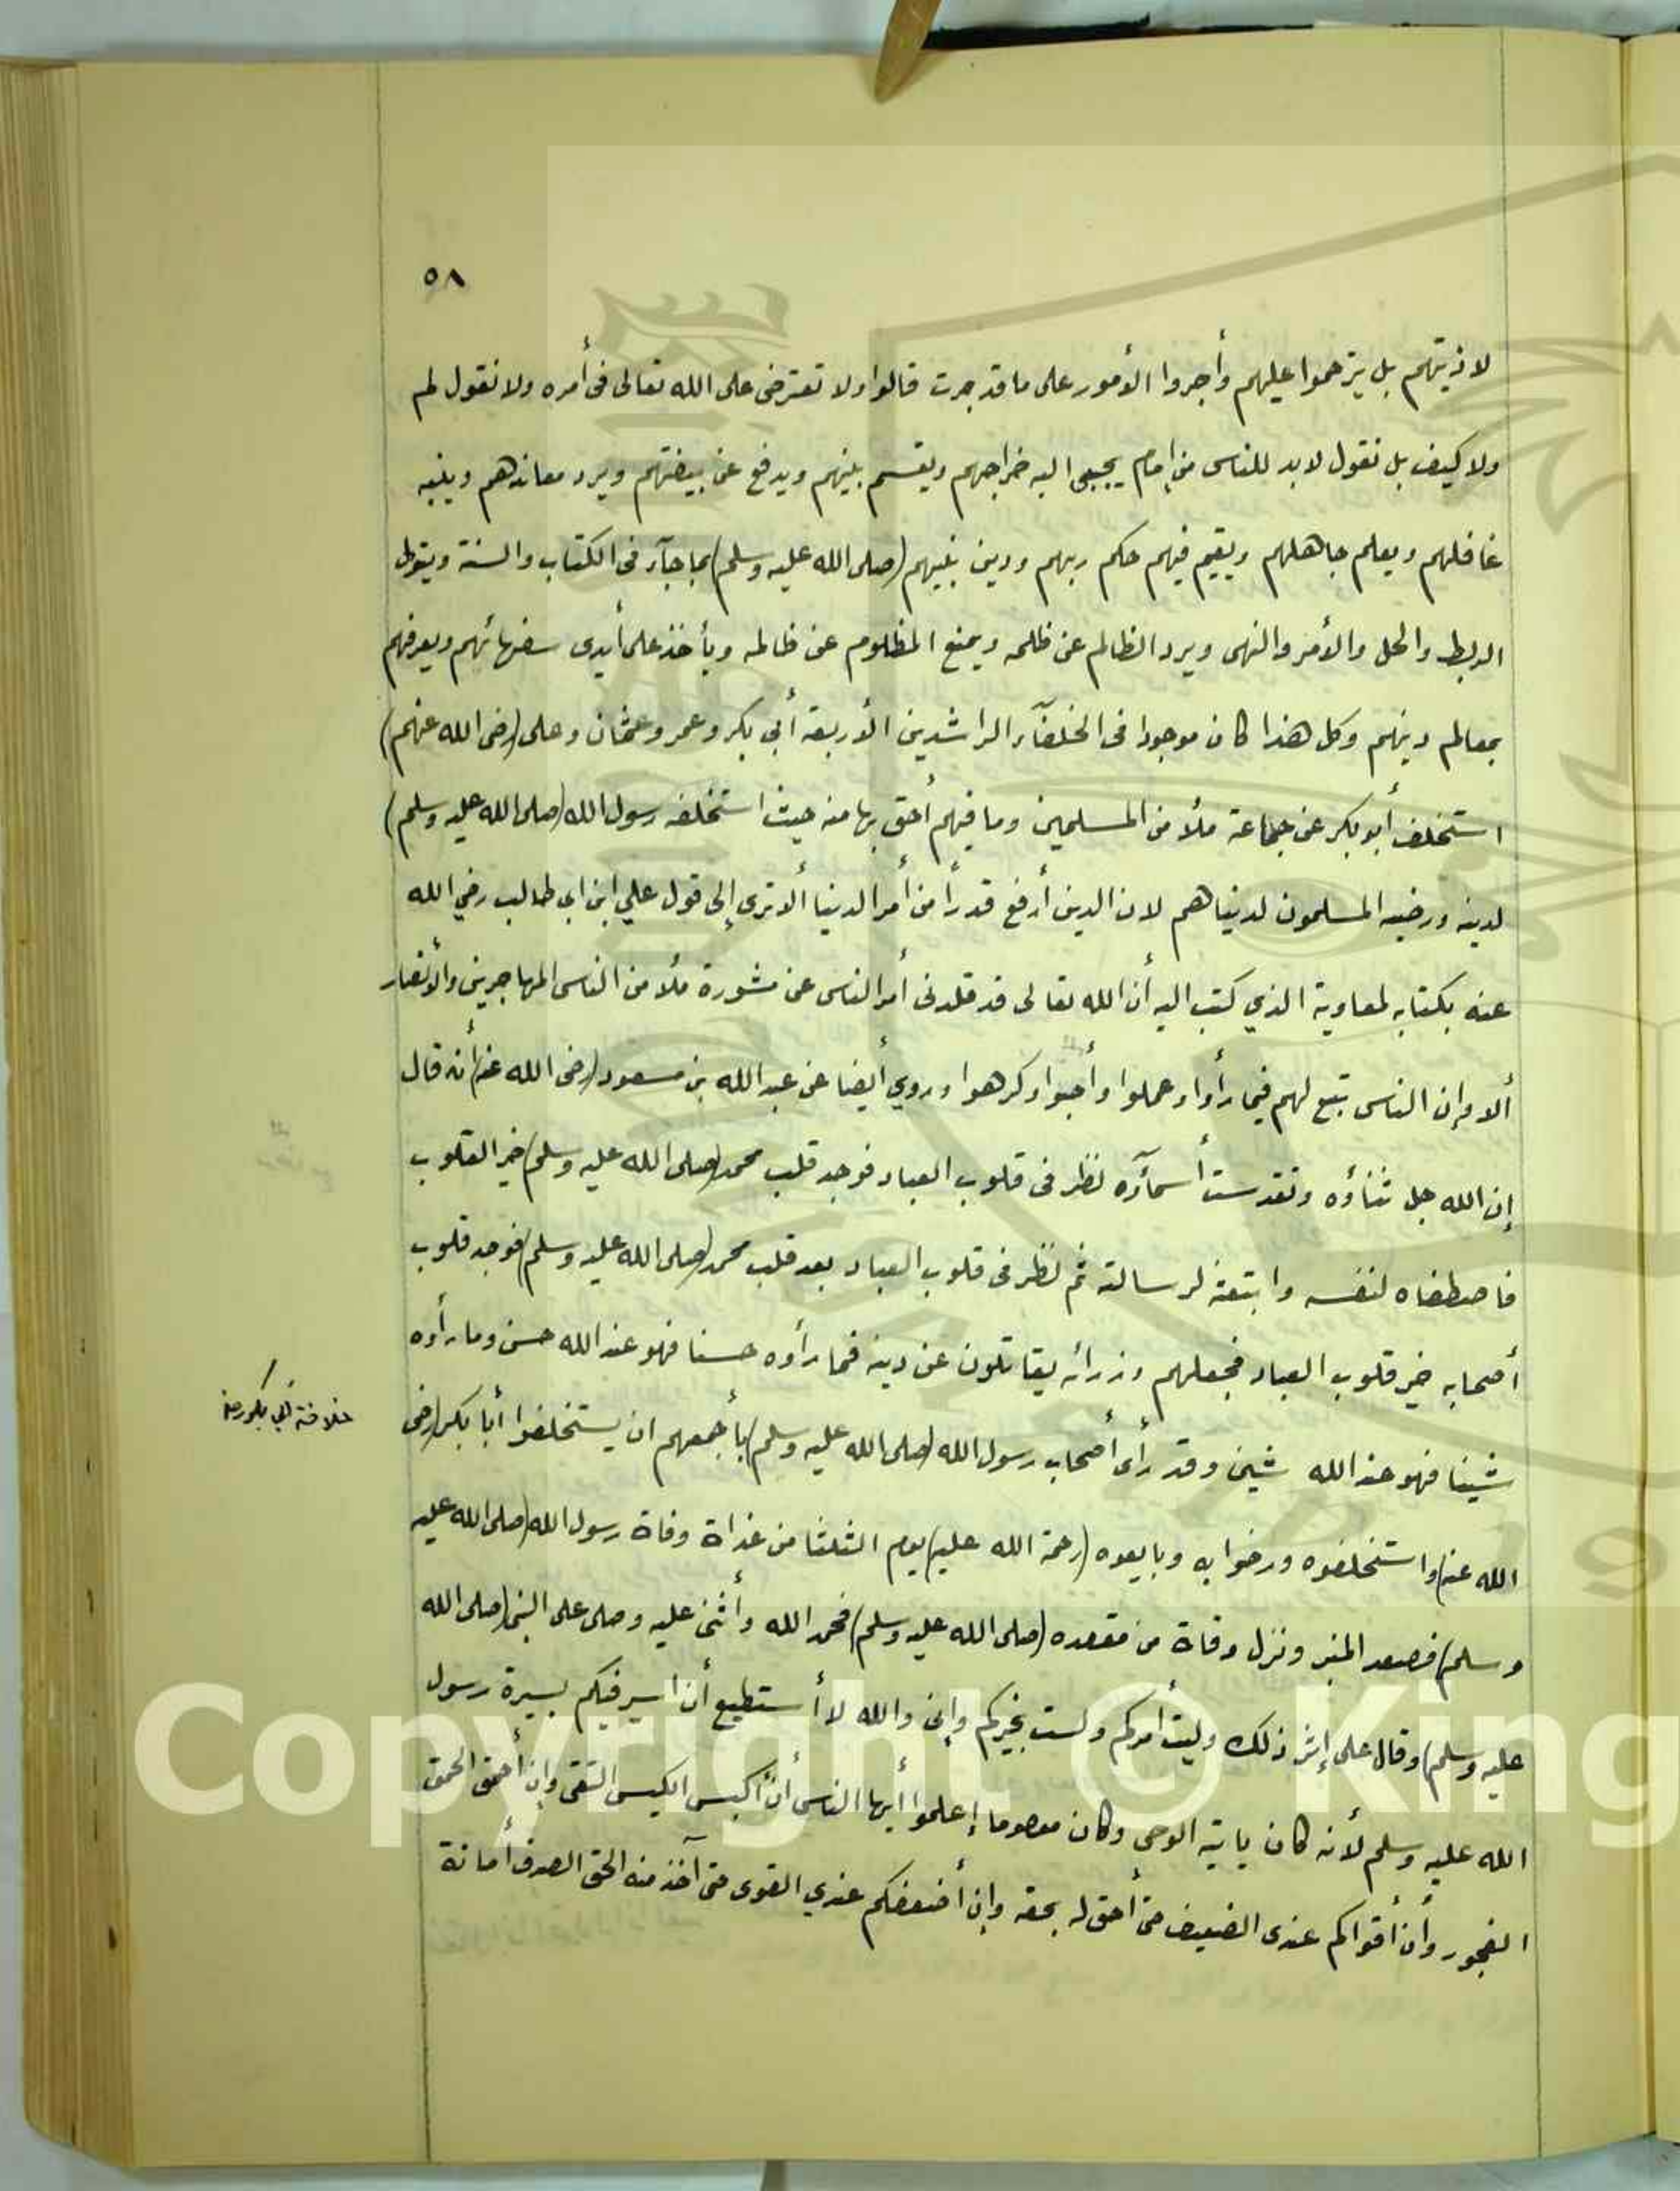 ٥٨
لاذيتهم بل يترحموا عليهم وأجروا الأمور على ما قد جرت قالوا ولا تعترض على الله تعالى فى أمره ولا نقول لم
ولا كيف بل نقول لابد للناس من إمام يجبى اليه خراجهم ويقسم بينهم ويدفع عن بيضتهم ويرد معاندهم وينبه
غافلهم ويعلم جاهلهم ويقيم فيهم حكم ربهم ودين نبيهم (صلى الله عليه وسلم) بما جآء فى الكتاب والسنة ويتولى
الربط والحل والأمر والنهى ويرد الظالم عن ظلمه ويمنع المظلوم عن ظالمه ويأخذ على أيدى سفهائهم ويعرفهم
بمعالم دينهم وكل هذا كان موجودا فى الخلفآء الراشدين الأربعة أبي بكر وعمر وعثمان وعلى (رضى الله عنهم)
استخلف أبو بكر عن جماعة ملأ من المسلمين وما فيهم أحق بها منه حيث استخلفه رسول الله (صلى الله عليه وسلم)
لدينه ورضيه المسلمون لدنياهم لان الدين أرفع قدرأ من أمر الدنيا ألا ترى إلى قول علي ابن ابى طالب رضي الله
عنه بكتابه لمعاوية الذي كتب اليه أن الله تعالى قد قلدنى أمر الناس عن مشورة ملأ من الناس المهاجرين والأنصار
ألا وإن الناس تبع لهم فيما رأوا وعملوا وأحبوا وكرهوا وروي أيضا عن عبد الله بن مسعود (رضى الله عنه) أنه قال
إن الله جل ثناؤه وتقدست أسمآؤه نظر فى قلوب العباد فوجد قلب محمد (صلى الله عليه وسلم) خير القلوب
فاصطفاه لنفسه وابتعثه لرسالته ثم نظر فى قلوب العباد بعد قلب محمد (صلى الله عليه وسلم) فوجد قلوب
أصحابه خير قلوب العباد فجعلهم وزرائه يقاتلون عن دينه فما رأوه حسنا فهو عند الله حسن وما رأوه
شينا فهو عند الله شين وقد رأى أصحاب رسول الله (صلى الله عليه وسلم) بأجمعهم ان يستخلفوا أبا بكر (رضى
خلافة أبي بكر رضه
الله عنه) واستخلفوه ورضوا به وبايعوه (رحمة الله عليه) يوم الثلثا من غداة وفاة رسول الله (صلى الله عليه
وسلم) فصعد المنبر ونزل مرقاة من مقعده (صلى الله عليه وسلم) فحمد الله وأثنى عليه وصلى على النبى (صلى الله
عليه وسلم) وقال على إثر ذلك وليت أمركم ولست بخيركم وإنى والله لا أستطيع أن اسير فيكم بسيرة رسول
الله عليه وسلم لأنه كان ياتيه الوحى وكان معصوما إعلموا أيها الناس أن أكيس الكيس التقى وإن أحمق الحمق
الفجور وأن أقواكم عندى الضعيف حتى أحق له بحقه وإن أضعفكم عندي القوى حتى آخذ منه الحق الصدق أمانة
Copyright © King